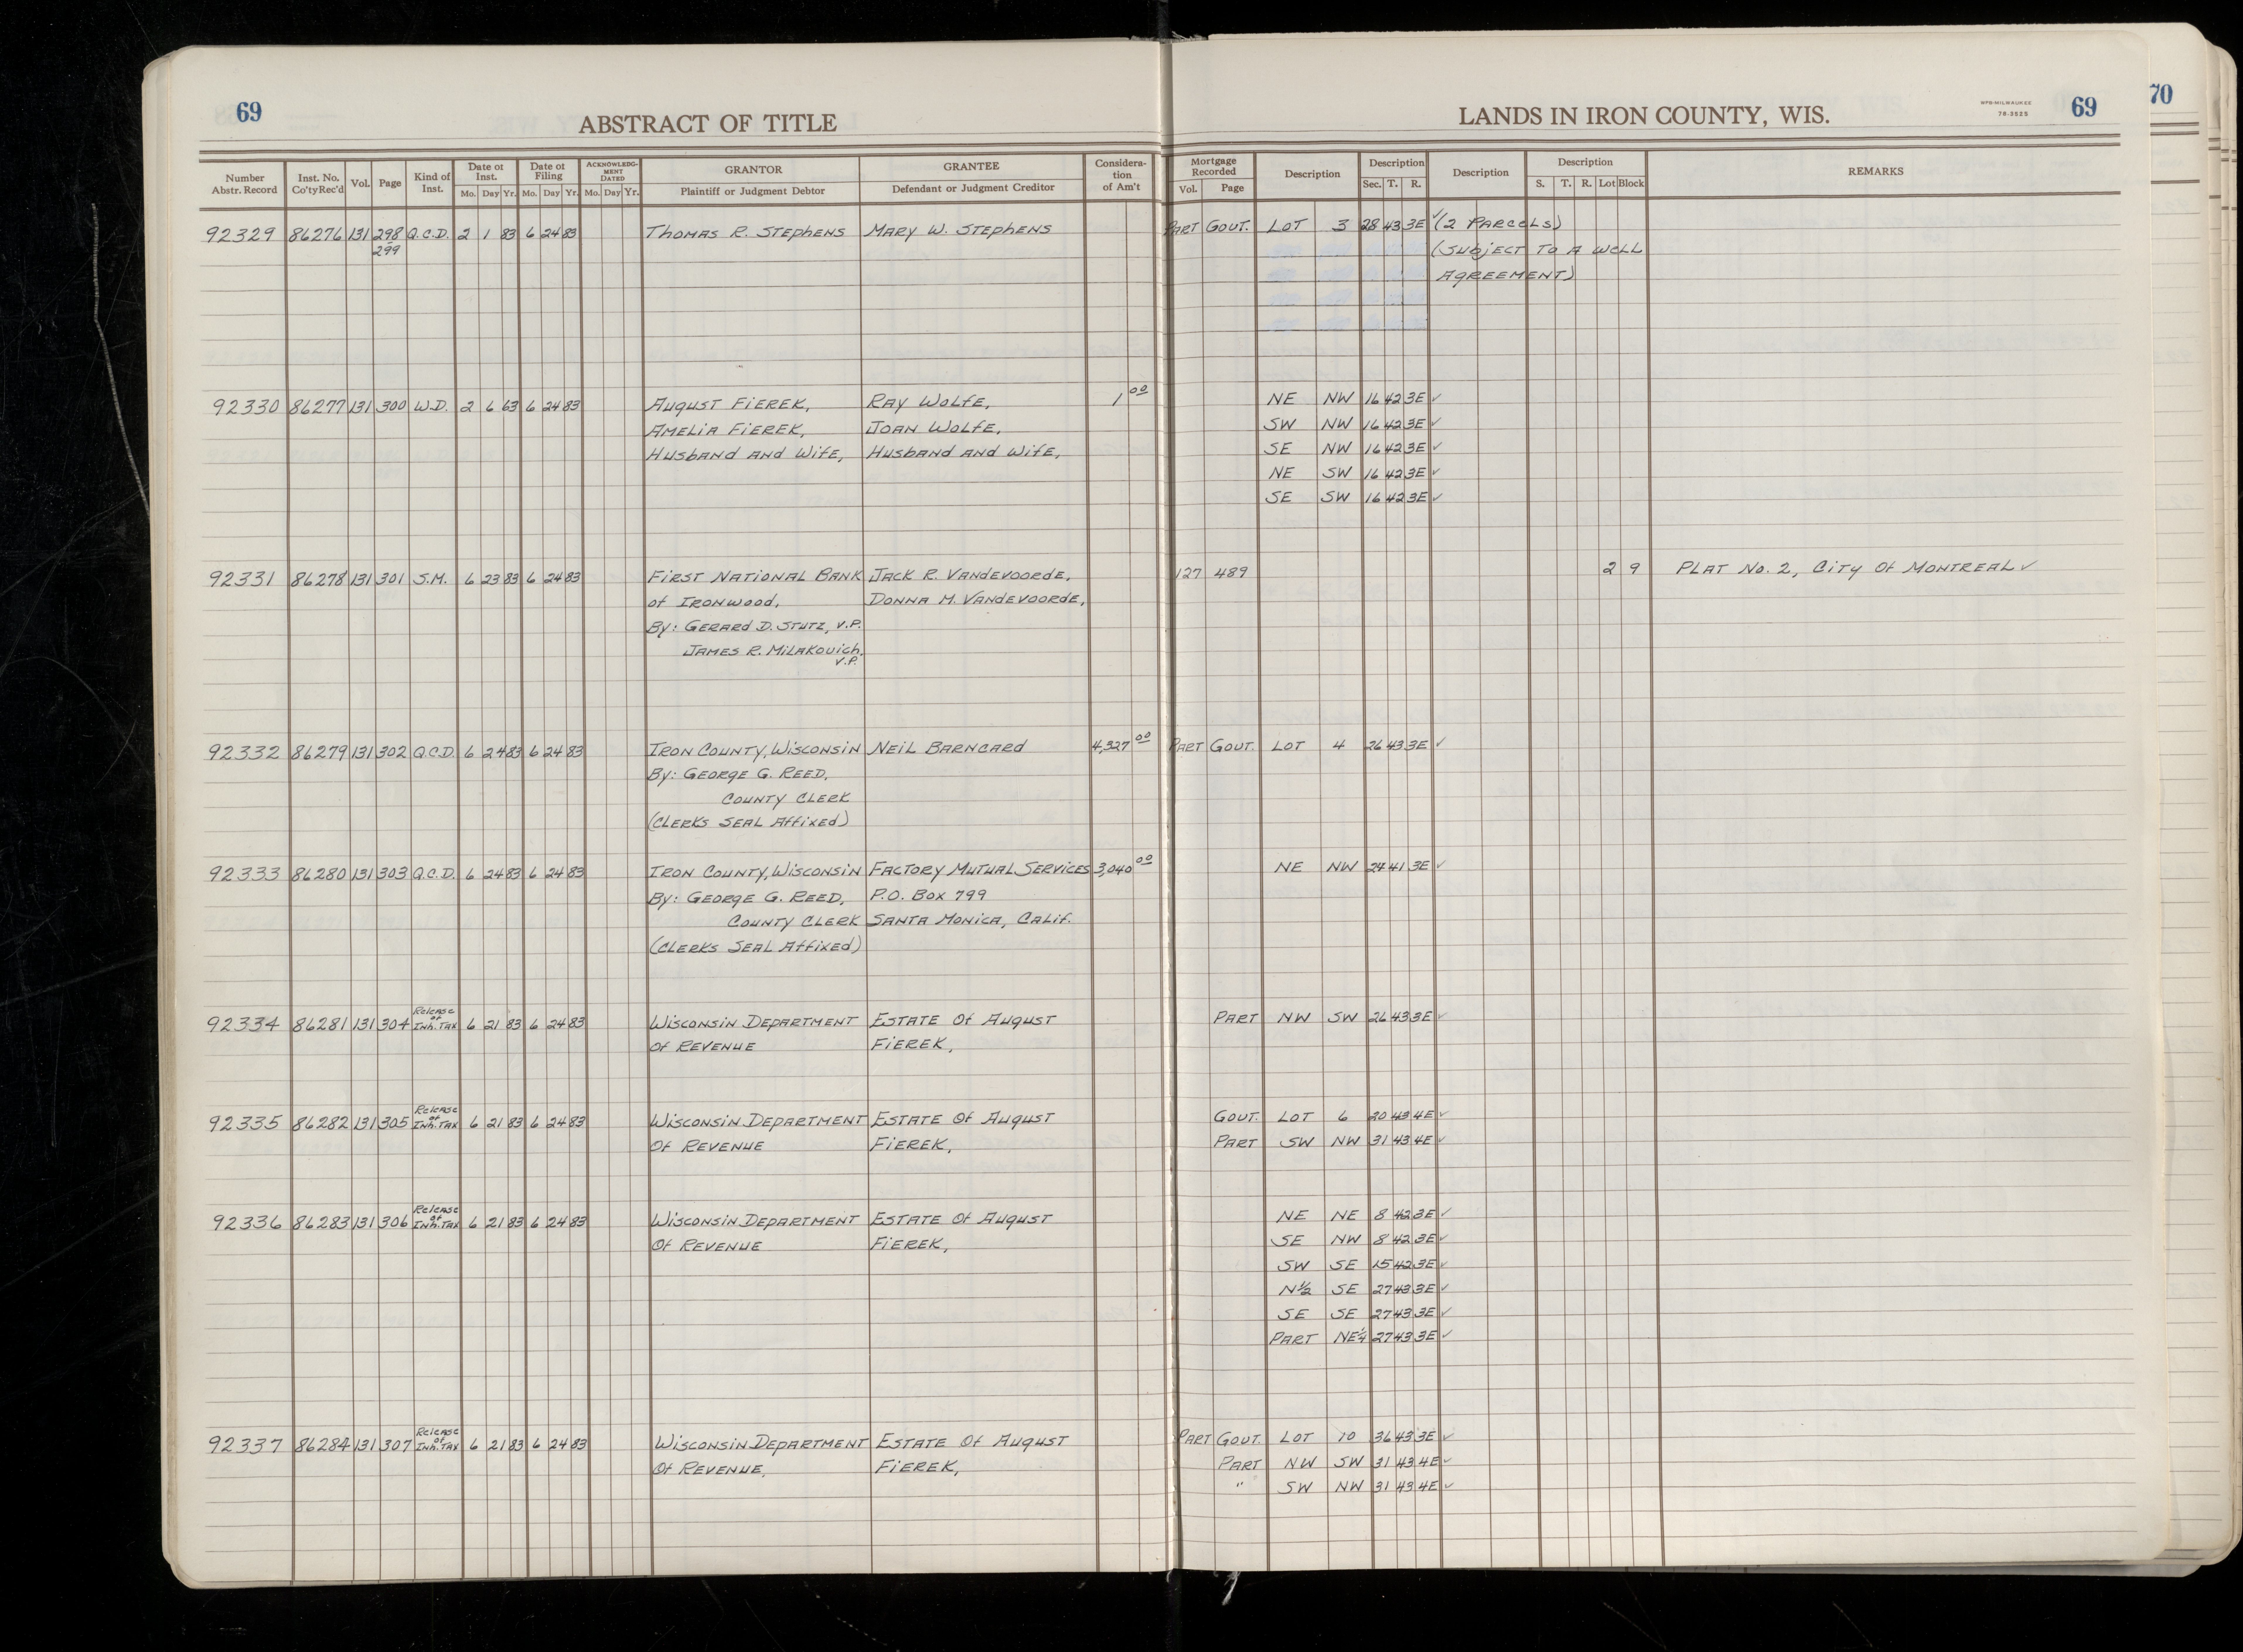 69
ABSTRACT OF TITLE
LANDS IN IRON COUNTY, WIS.
WPB-MILWAUKEE
78-3525
69
70
Number Abstr. Record
Inst. No. Co'ty Rec'd
Vol.
Page
Kind of Inst.
Date of Inst.
Mo. Day Yr.
Date of Filing
Mo. Day Yr.
ACKNOWLEDGMENT DATED
Mo. Day Yr.
GRANTOR
Plaintiff or Judgment Debtor
GRANTEE
Defendant or Judgment Creditor
Considera-
tion
of Am't
Mortgage Recorded
Vol. Page
Description
Description
Sec. T. R.
Description
Description
S. T. R. Lot Block
REMARKS
92329 86276 131 298 Q.C.D. 2 1 83 6 24 83 Thomas R. Stephens Mary W. Stephens Part Govt. Lot 3 28 43 3E ✓ (2 Parcels)
299 (Subject to a well
Agreement)
92330 86277 131 300 W.D. 2 6 63 6 24 83 August Fierek, Ray Wolfe, 1 00 NE NW 16 42 3E ✓
Amelia Fierek, Joan Wolfe, SW NW 16 42 3E ✓
Husband and Wife, Husband and Wife, SE NW 16 42 3E ✓
NE SW 16 42 3E ✓
SE SW 16 42 3E ✓
92331 86278 131 301 S.M. 6 23 83 6 24 83 First National Bank Jack R. Vandevoorde, 127 489 2 9 Plat No. 2, City of Montreal ✓
of Ironwood, Donna M. Vandevoorde,
By: Gerard D. Stutz, V.P.
James R. Milakovich,
V.P.
92332 86279 131 302 Q.C.D. 6 24 83 6 24 83 Iron County, Wisconsin Neil Barncard 4,327 00 Part Govt. Lot 4 26 43 3E ✓
By: George G. Reed,
County Clerk
(Clerks Seal Affixed)
92333 86280 131 303 Q.C.D. 6 24 83 6 24 83 Iron County, Wisconsin Factory Mutual Services 3,040 00 NE NW 24 41 3E ✓
By: George G. Reed, P.O. Box 799
County Clerk Santa Monica, Calif.
(Clerks Seal Affixed)
92334 86281 131 304 Release of Inh. Tax 6 21 83 6 24 83 Wisconsin Department Estate of August Part NW SW 26 43 3E ✓
of Revenue Fierek,
92335 86282 131 305 Release of Inh. Tax 6 21 83 6 24 83 Wisconsin Department Estate of August Govt. Lot 6 20 43 4E ✓
of Revenue Fierek, Part SW NW 31 43 4E ✓
92336 86283 131 306 Release of Inh. Tax 6 21 83 6 24 83 Wisconsin Department Estate of August NE NE 8 42 3E ✓
of Revenue Fierek, SE NW 8 42 3E ✓
SW SE 15 42 3E ✓
N½ SE 27 43 3E ✓
SE SE 27 43 3E ✓
Part NE¼ 27 43 3E ✓
92337 86284 131 307 Release of Inh. Tax 6 21 83 6 24 83 Wisconsin Department Estate of August Part Govt. Lot 10 36 43 3E ✓
of Revenue, Fierek, Part NW SW 31 43 4E ✓
" SW NW 31 43 4E ✓